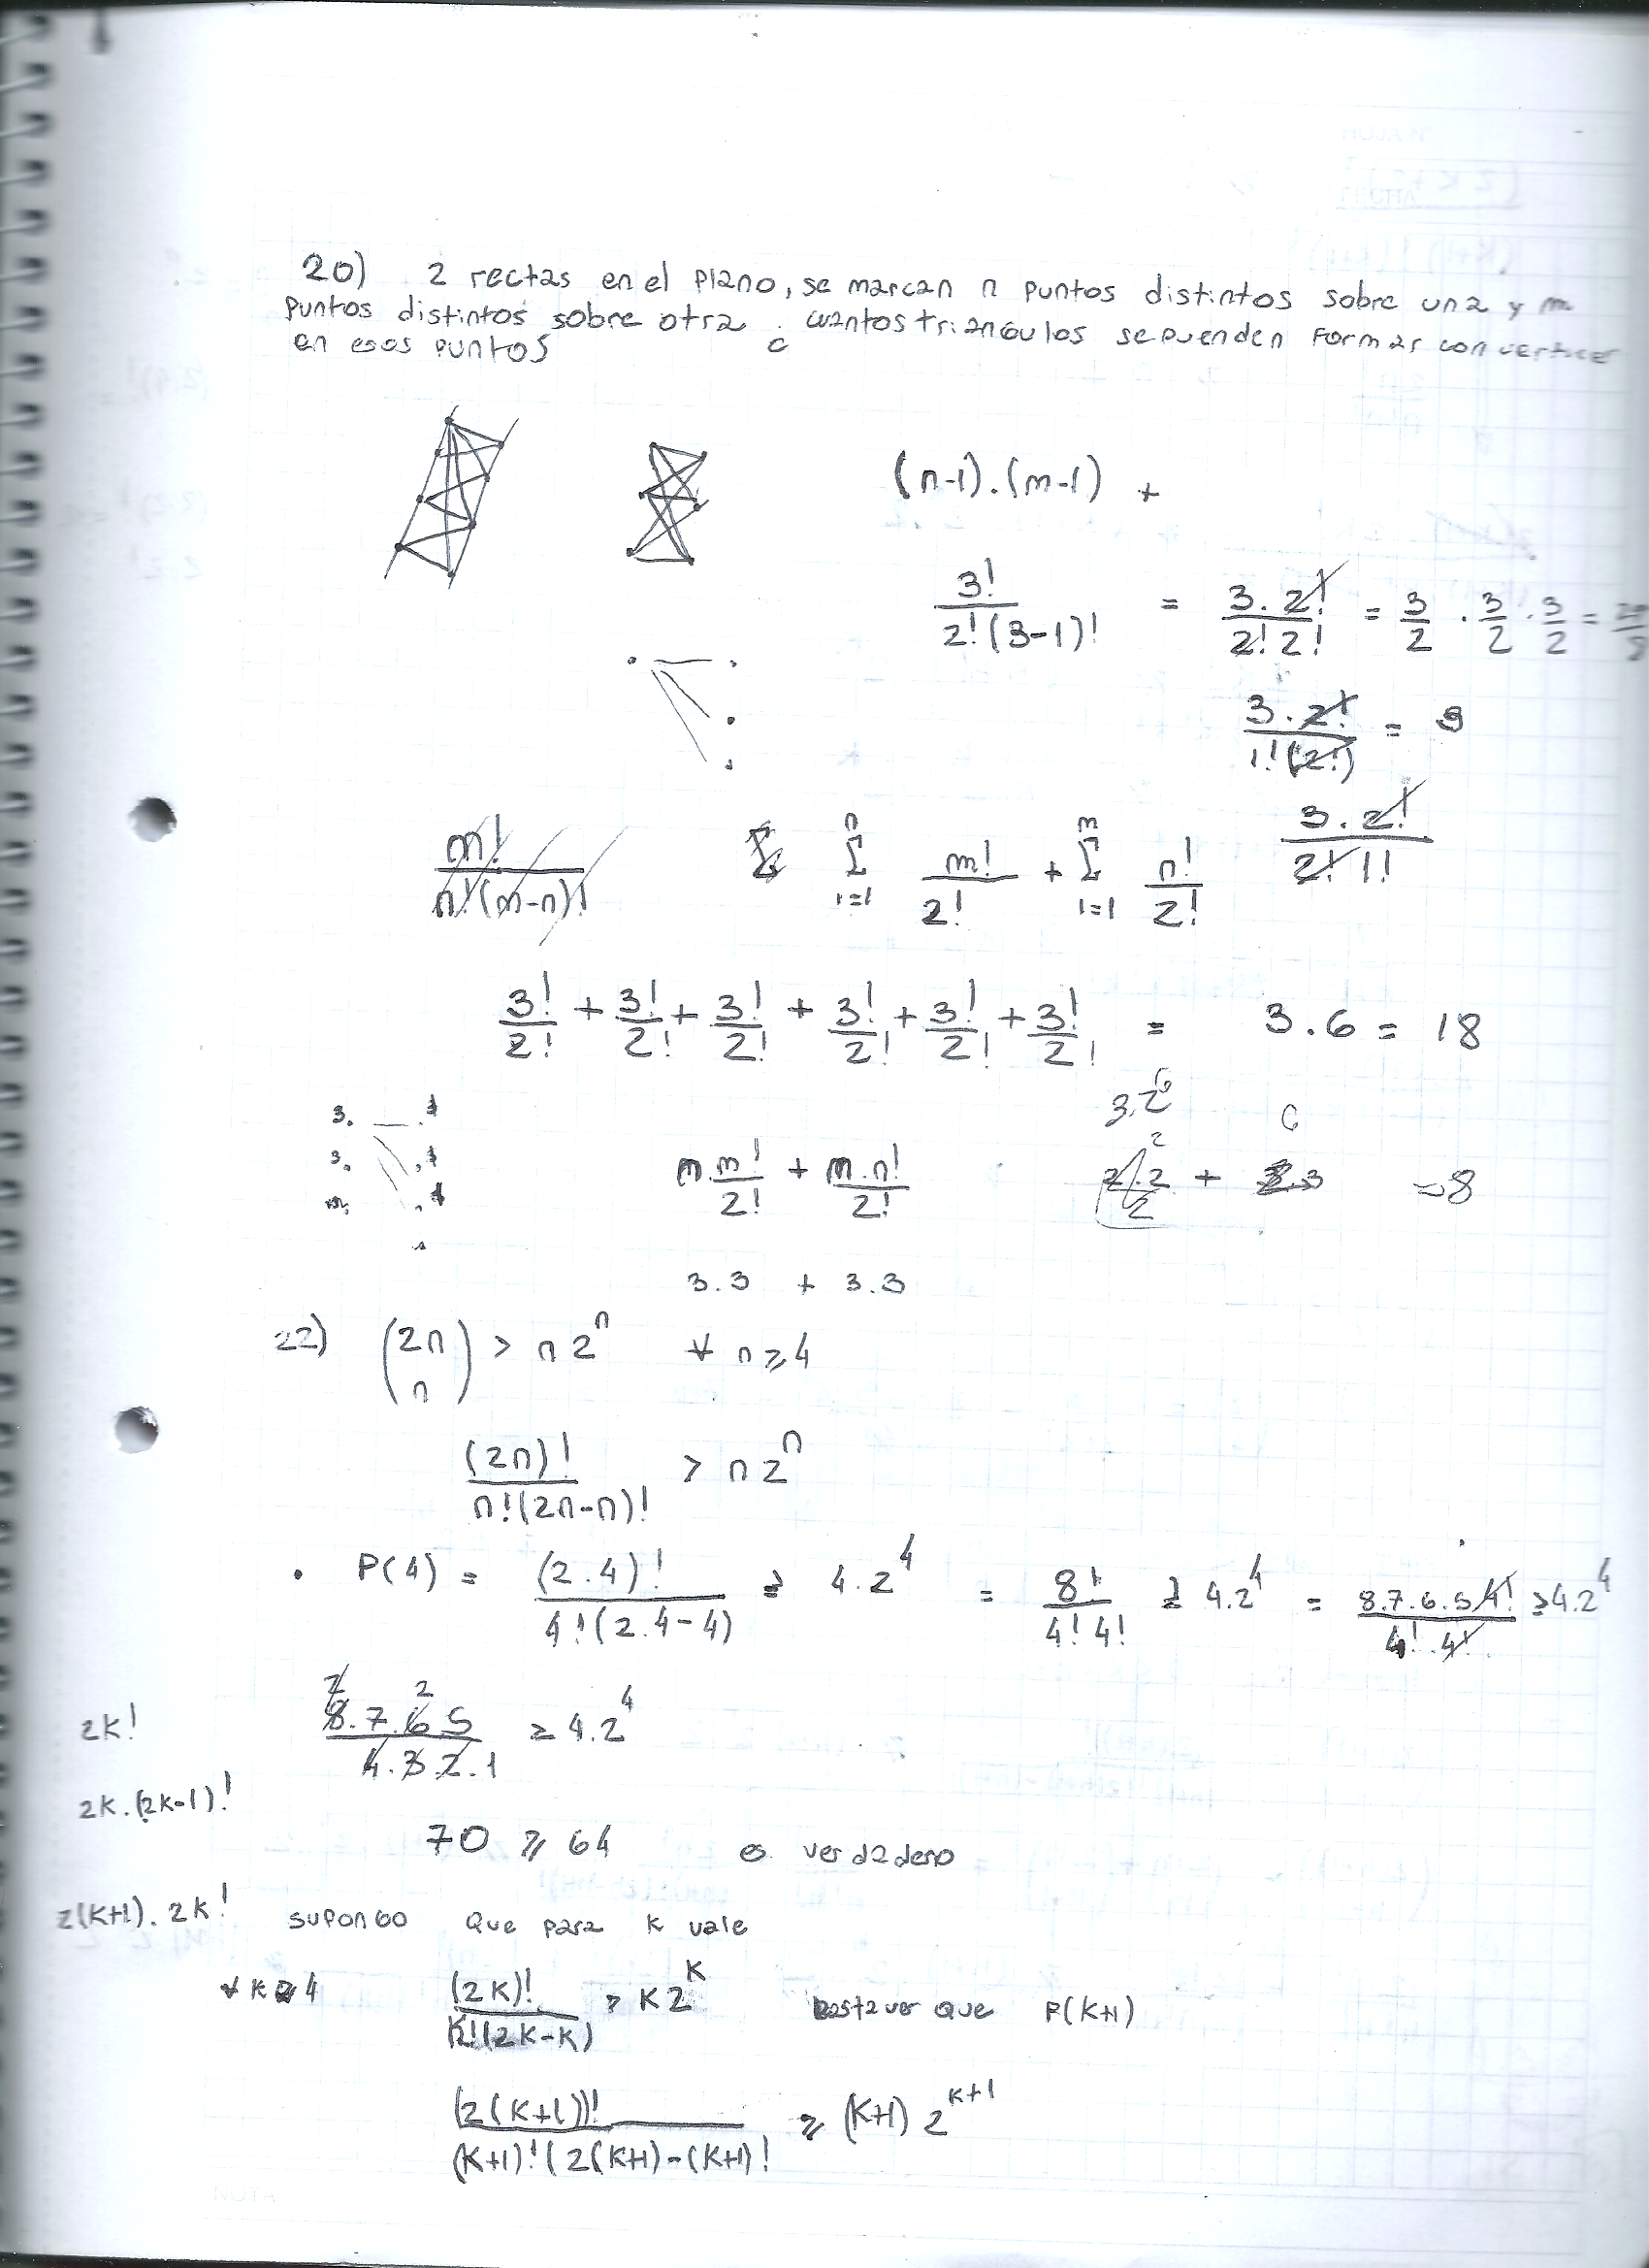 20) 2 rectas en el plano, se marcan n puntos distintos sobre una y m
puntos distintos sobre otra ¿ cuantos triangulos se puenden formar con vertices
en esos puntos
(n-1).(m-1) +
3!/2!(3-1)! = 3.2!/2!2! = 3/2 . 3/2 . 3/2 =
3.2!/1!(2!) = 3
m!/n!(m-n)! Σ i=1 n m!/2! + Σ i=1 m n!/2! 3.2!/2!1!
3!/2! + 3!/2! + 3!/2! + 3!/2! + 3!/2! + 3!/2! = 3.6 = 18
3.2 6 6
m!/2! + m.n!/2! 2.2/2 + .3 = 8
3.3 + 3.3
22) (2n n) > n 2^n ∀ n ≥ 4
(2n)!/n!(2n-n)! > n 2^n
• P(4) = (2.4)!/4!(2.4-4) ≥ 4.2^4 = 8!/4!4! ≥ 4.2^4 = 8.7.6.5 4!/4! 4! ≥ 4.2^4
2k! 8.7.6.5/4.3.2.1 ≥ 4.2^4
2k.(2k-1)!
70 ≥ 64 es verdadero
2(k+1).2k! supongo que para k vale
∀ k ≥ 4 (2k)!/k!(2k-k) > k 2^k que P(k+1)
(2(k+1))!/(k+1)!(2(k+1)-(k+1)! ≥ (k+1) 2^k+1